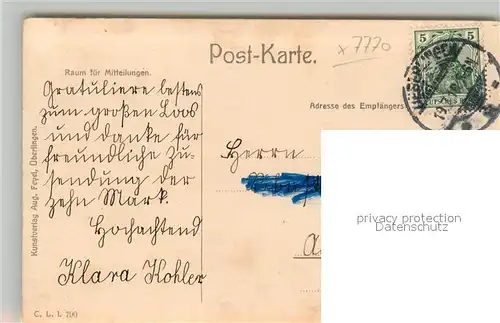 Post-Karte.
x 7770
5 5
Raum für Mitteilungen.
Gratuliere bestens
zum großen Loos
und danke für
freundliche Zu-
sendung der
zehn Mark.
Hochachtend
Klara Kohler
Adresse des Empfängers
Herrn
privacy protection
Datenschutz
Kunstverlag Aug. Feyel, Überlingen.
C. L. I. 700